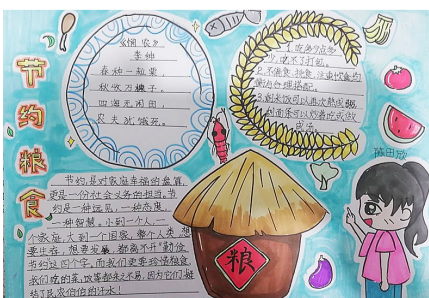 节约粮食
《悯农》
李绅
春种一粒粟,
秋收万颗子。
四海无闲田,
农夫犹饿死。
1.吃多少点多
少,吃不了打包。
2.不偏食,挑食,注重饮食均
衡与合理搭配。
3.剩米饭可以再次熬成粥,
剩面条可以炒着吃或做
成汤
陈田欣
节约,是对家庭幸福的盘算,
更是一份社会义务的担当。节
约是一种远见,一种态度,
一种智慧。小到一个人、一
个家庭,大到一个国家,整个人类,想
要生存,想要发展,都离不开"勤俭
节约这四个字。而我们更要珍惜粮食,
我们吃的菜、饭等都来之不易,因为它们凝
结了民农伯伯的汗水!
粮